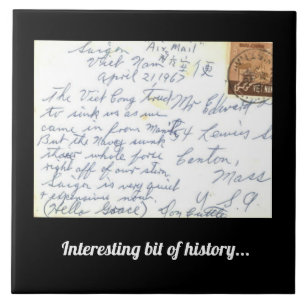 Saigon
"Air Mail"
Viet Nam 航空便
April 21, 1967
VIET-NAM
The Viet Cong tried
to sink us as we
came in from
But the Navey sunk
their whole force
right off of our stern
Saigon is very quiet
& expensive now
(Hello Grace)
Mr Edward
54 Lewis S
Canton,
Mass
U.S.A
Interesting bit of history...